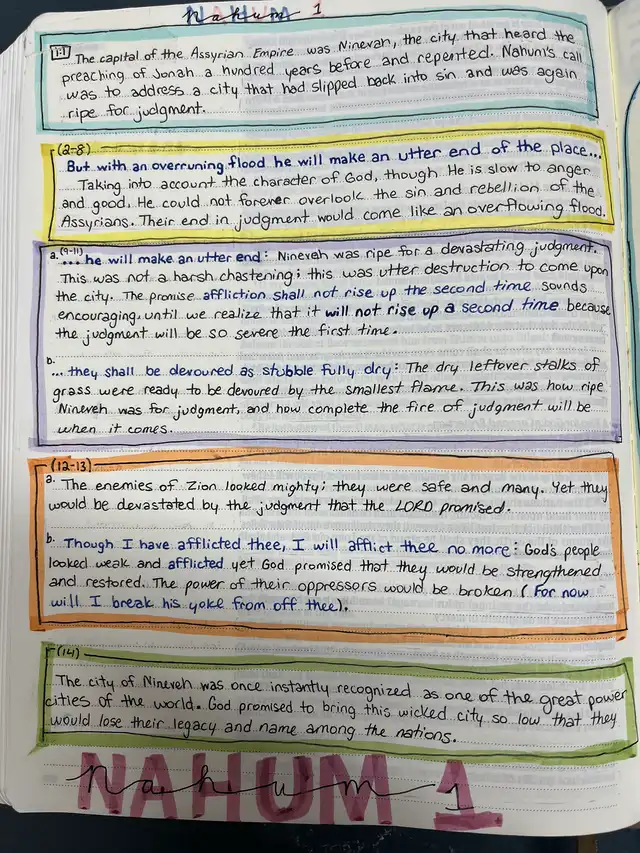 Nahum 1
1:1 The capital of the Assyrian Empire was Ninevah, the city that heard the
preaching of Jonah a hundred years before and repented. Nahum's call
was to address a city that had slipped back into sin and was again
ripe for judgment.
(2-8)
But with an overruning flood he will make an utter end of the place...
Taking into account the character of God, though He is slow to anger
and good, He could not forever overlook the sin and rebellion of the
Assyrians. Their end in judgment would come like an overflowing flood.
a. (9-11)
... he will make an utter end: Nineveh was ripe for a devastating judgment.
This was not a harsh chastening; this was utter destruction to come upon
the city. The promise affliction shall not rise up the second time sounds
encouraging until we realize that it will not rise up a second time because
the judgment will be so severe the first time.
b.
... they shall be devoured as stubble fully dry: The dry leftover stalks of
grass were ready to be devoured by the smallest flame. This was how ripe
Nineveh was for judgment, and how complete the fire of judgment will be
when it comes.
(12-13)
a.
The enemies of Zion looked mighty; they were safe and many. Yet they
would be devastated by the judgment that the LORD promised.
b.
Though I have afflicted thee, I will afflict thee no more: God's people
looked weak and afflicted yet God promised that they would be strengthened
and restored. The power of their oppressors would be broken (For now
will I break his yoke from off thee).
(14)
The city of Nineveh was once instantly recognized as one of the great power
cities of the world. God promised to bring this wicked city so low that they
would lose their legacy and name among the nations.
NAHUM 1
Nahum 1